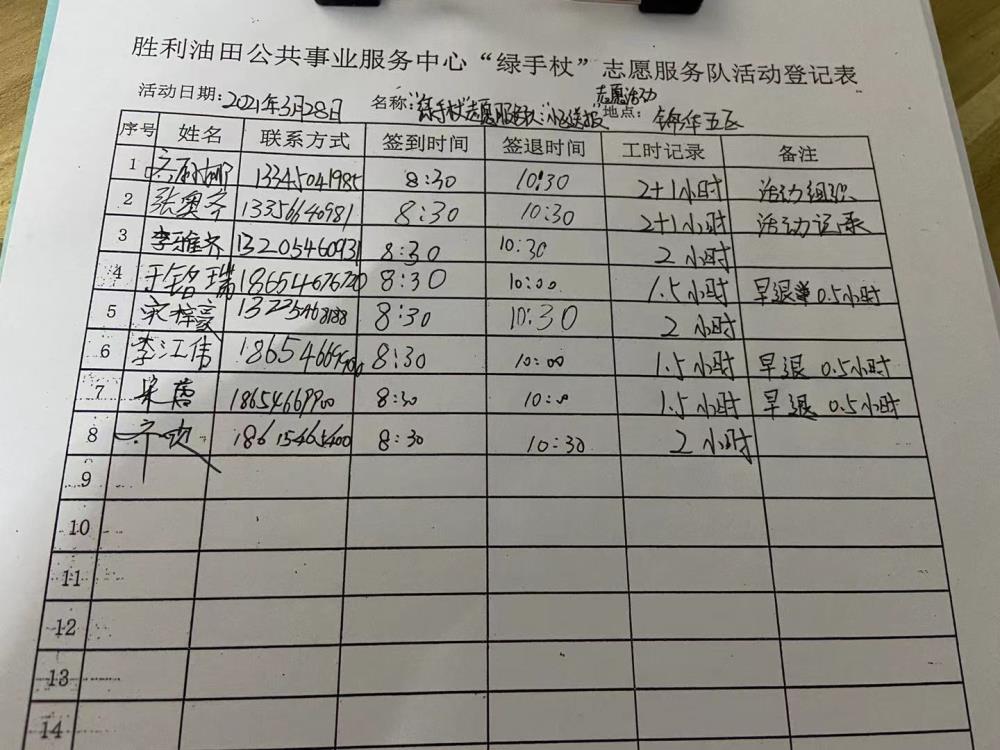 胜利油田公共事业服务中心“绿手杖”志愿服务队活动登记表
志愿活动
活动日期：2021年3月28日 名称：“绿手杖”志愿服务队：小区送报 地点：锦华五区
序号 姓名 联系方式 签到时间 签退时间 工时记录 备注
1 13345041985 8:30 10:30 2+1小时 活动组织
2 张奥齐 13356640981 8:30 10:30 2+1小时 活动记录
3 李雅齐 13205460931 8:30 10:30 2小时
4 于铭瑞 18654676720 8:30 10:00 1.5小时 早退 0.5小时
5 宋梓豪 13225468188 8:30 10:30 2小时
6 李江伟 18654669900 8:30 10:00 1.5小时 早退 0.5小时
7 18654669900 8:30 10:00 1.5小时 早退 0.5小时
8 18615465400 8:30 10:30 2小时
9
10
11
12
13
14